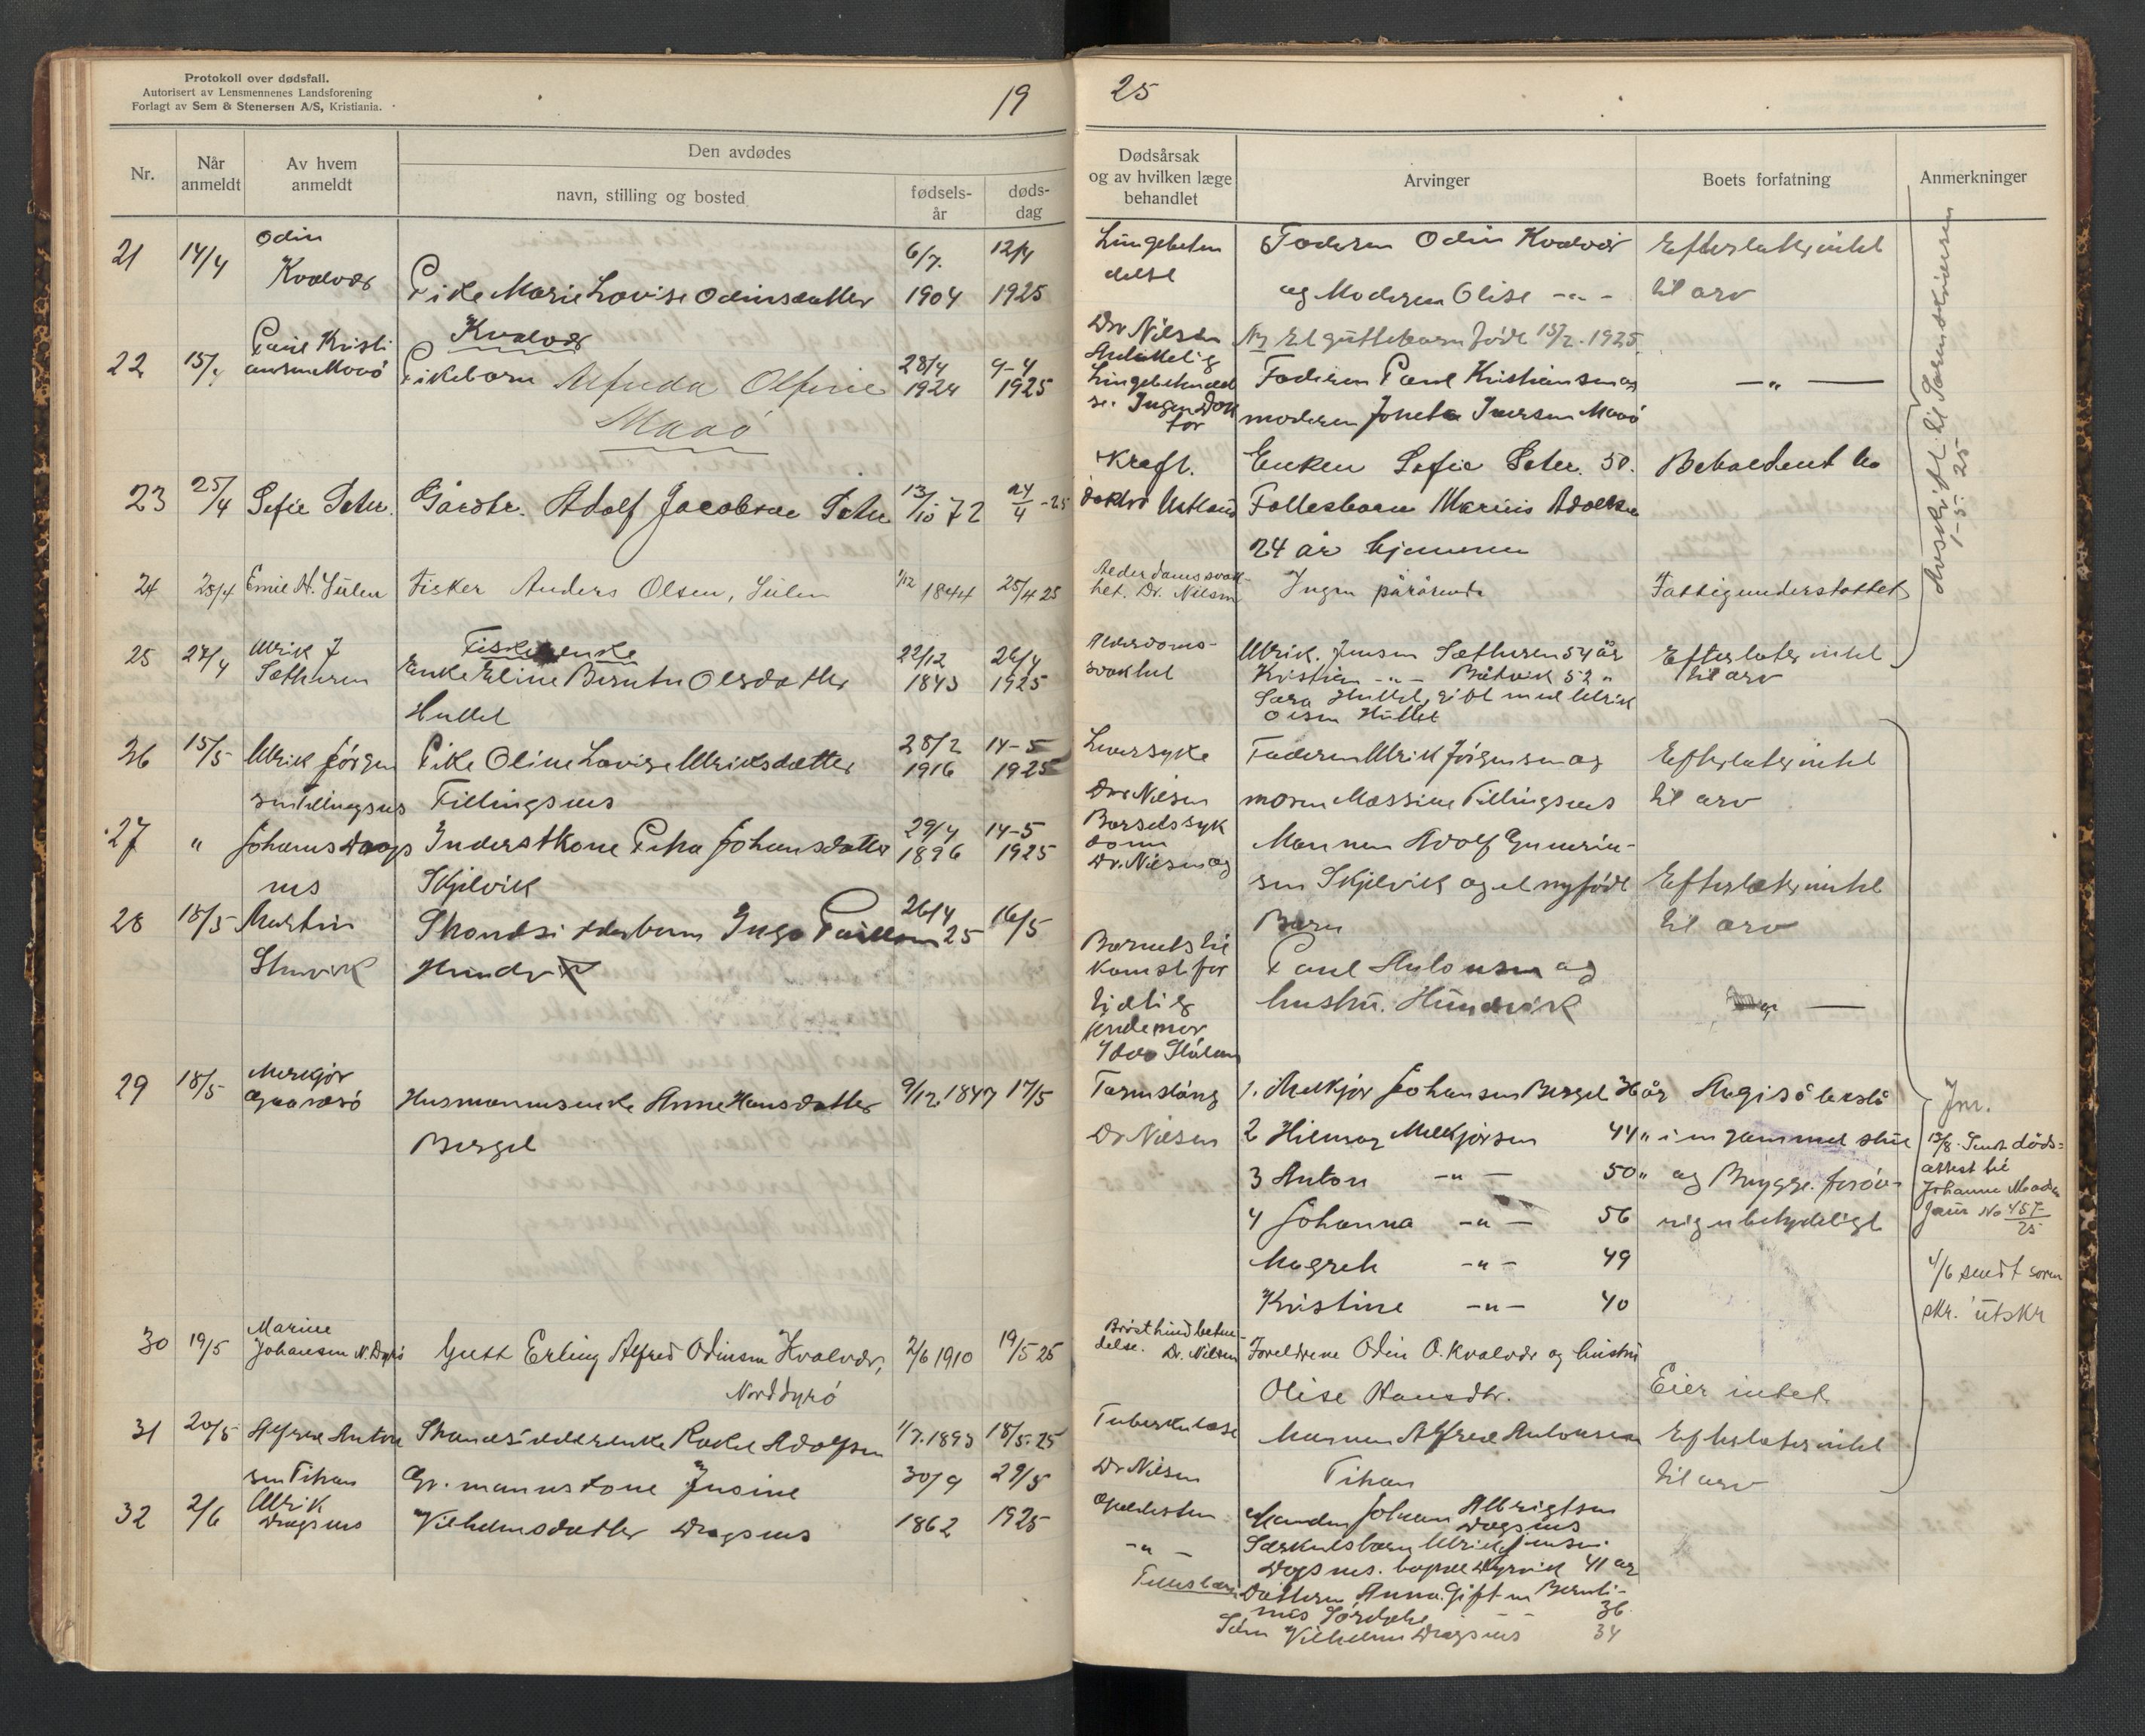 Protokoll over dødsfall.
Autorisert av Lensmennenes Landsforening
Forlagt av Sem & Stenersen A/S, Kristiania.
19
Nr.
Når anmeldt
Av hvem anmeldt
Den avdødes
navn, stilling og bosted
fødsels-år
døds-dag
21 14/4 Odin Kvalvær
Pike Marie Lovise Odinsdatter
Kvalvær
6/7. 1904
12/4 1925
22 15/4 Paul Kristiansen Mavø
Pikebarn Alfrida Olfine
Mavø
28/4 1924
9-4 1925
23 25/4 Sofie Seter.
Gårdbr. Adolf Jacobsen Seter
13/10 72
24/4 - 25
24 28/4 Emil H. Sulen
Fisker Anders Olsen, Sulen
1/12 1844
25/4 25
25 27/4 Ulrik J Sætheren
Fiskerenke
Enke Eline Berntine Olsdatter
Hullet
22/12 1843
26/4 1925
26 15/5 Ulrik Jørgensen Tillingsnes
Pike Oline Lovise Ulriksdatter
Tillingsnes
28/2 1916
14-5 1925
27 " Johannes Dragsnes
Inderstkone Petra Johansdatter
Skjelvik
29/4 1896
14-5 1925
28 18/5 Martin Storvik
Strandsidderbarn Inga Paulsen
Hundvik
26/4 25
16/5
29 18/5 Melkjør Gaarsø
Husmannsenke Anne Hansdatter
Bergel
9/12 1847
17/5
30 19/5 Marine Johansen N. Dyrø
Gutt Erling Alfred Odinsen Kvalvær,
Norddyrø
2/6 1910
19/5 25
31 20/5 Alfred Antonsen Titran
Strandsidderenke Rakel Adolfsen
1/7. 1893
18/5. 25
32 2/6 Ulrik Dragsnes
Gr. mannskone Jusine
Vilhelmsdatter Dragsnes
30/9 1862
29/5 1925
25
Dødsårsak
og av hvilken læge
behandlet
Arvinger
Boets forfatning
Anmerkninger
Lungebetendelse
Dr Nilsen
Faderen Odin Kvalvær
og Moderen Olise -"-
Og Et guttebarn født 15/2. 1925
Efterlater intet
til arv
Lungebetendelse. Ingen Doktor
Faderen Paul Kristiansen og
moderen Joneta Iversen Mavø
- " -
Kreft.
doktor Ustland
Enken Sofie Seter. 50.
Fellesbarn Marius Adolfsen
24 år hjemme
Beholdent bo
Alderdomssvakhet. Dr. Nilsen
Ingen pårørende
Fattigunderstøttet
Alderdomssvakhet
Ulrik. Jensen Sætheren 54 år
Kristian -"- Båtvik 52 "
Sara Hullet, gift med Ulrik
Olsen Hullet
Efterlater intet
til arv
Avskrift til Sorenskriveren
1-5. 25
Leversyke
Dr Nilsen
Faderen Ulrik Jørgensen og
moren Massine Tillingsnes
Efterlater intet
til arv
Barselssykdom
Dr. Nilsen og
Mannen Adolf Gunerius-
sen Skjelvik og et nyfødt
Barn
Efterlater intet
til arv
Barnets tilkomst for
tidlig
jordemor
Paul Antonsen og
hustru. Hundvik
Tarmslång
Dr Nilsen
1. Melkjør Johansen Bergel 36 år
2 Hilmar Melkjørsen 44 "
3 Anton -"- 50 "
4 Johanna -"- 56
Magrete -"- 49
Kristine -"- 40
i en gammel stue
og Brygge. forøv-
rig ubetydeligt
Jnr.
13/8. Sendt døds-
attest til
Johanne
Jour No 457/25
4/6 sendt soren
skr. utskr
Brysthindebetendelse. Dr. Nilsen
Foreldrene Odin O. Kvalvær og hustru
Olise Hansdtr.
Eier intet
Tuberkulose
Dr Nilsen
Mannen Alfred Antonsen
Titran
Efterlater intet
til arv
-"-
Manden Johan Albrigtsen
Dragsnes
Særkulsbarn Ulrik Jensen.
Dragsnes. bopel Dyrvik 41 år
Fellesbarn Datteren Anna. Gift m Bernti-
nus 36
Søn Vilhelm Dragsnes 34